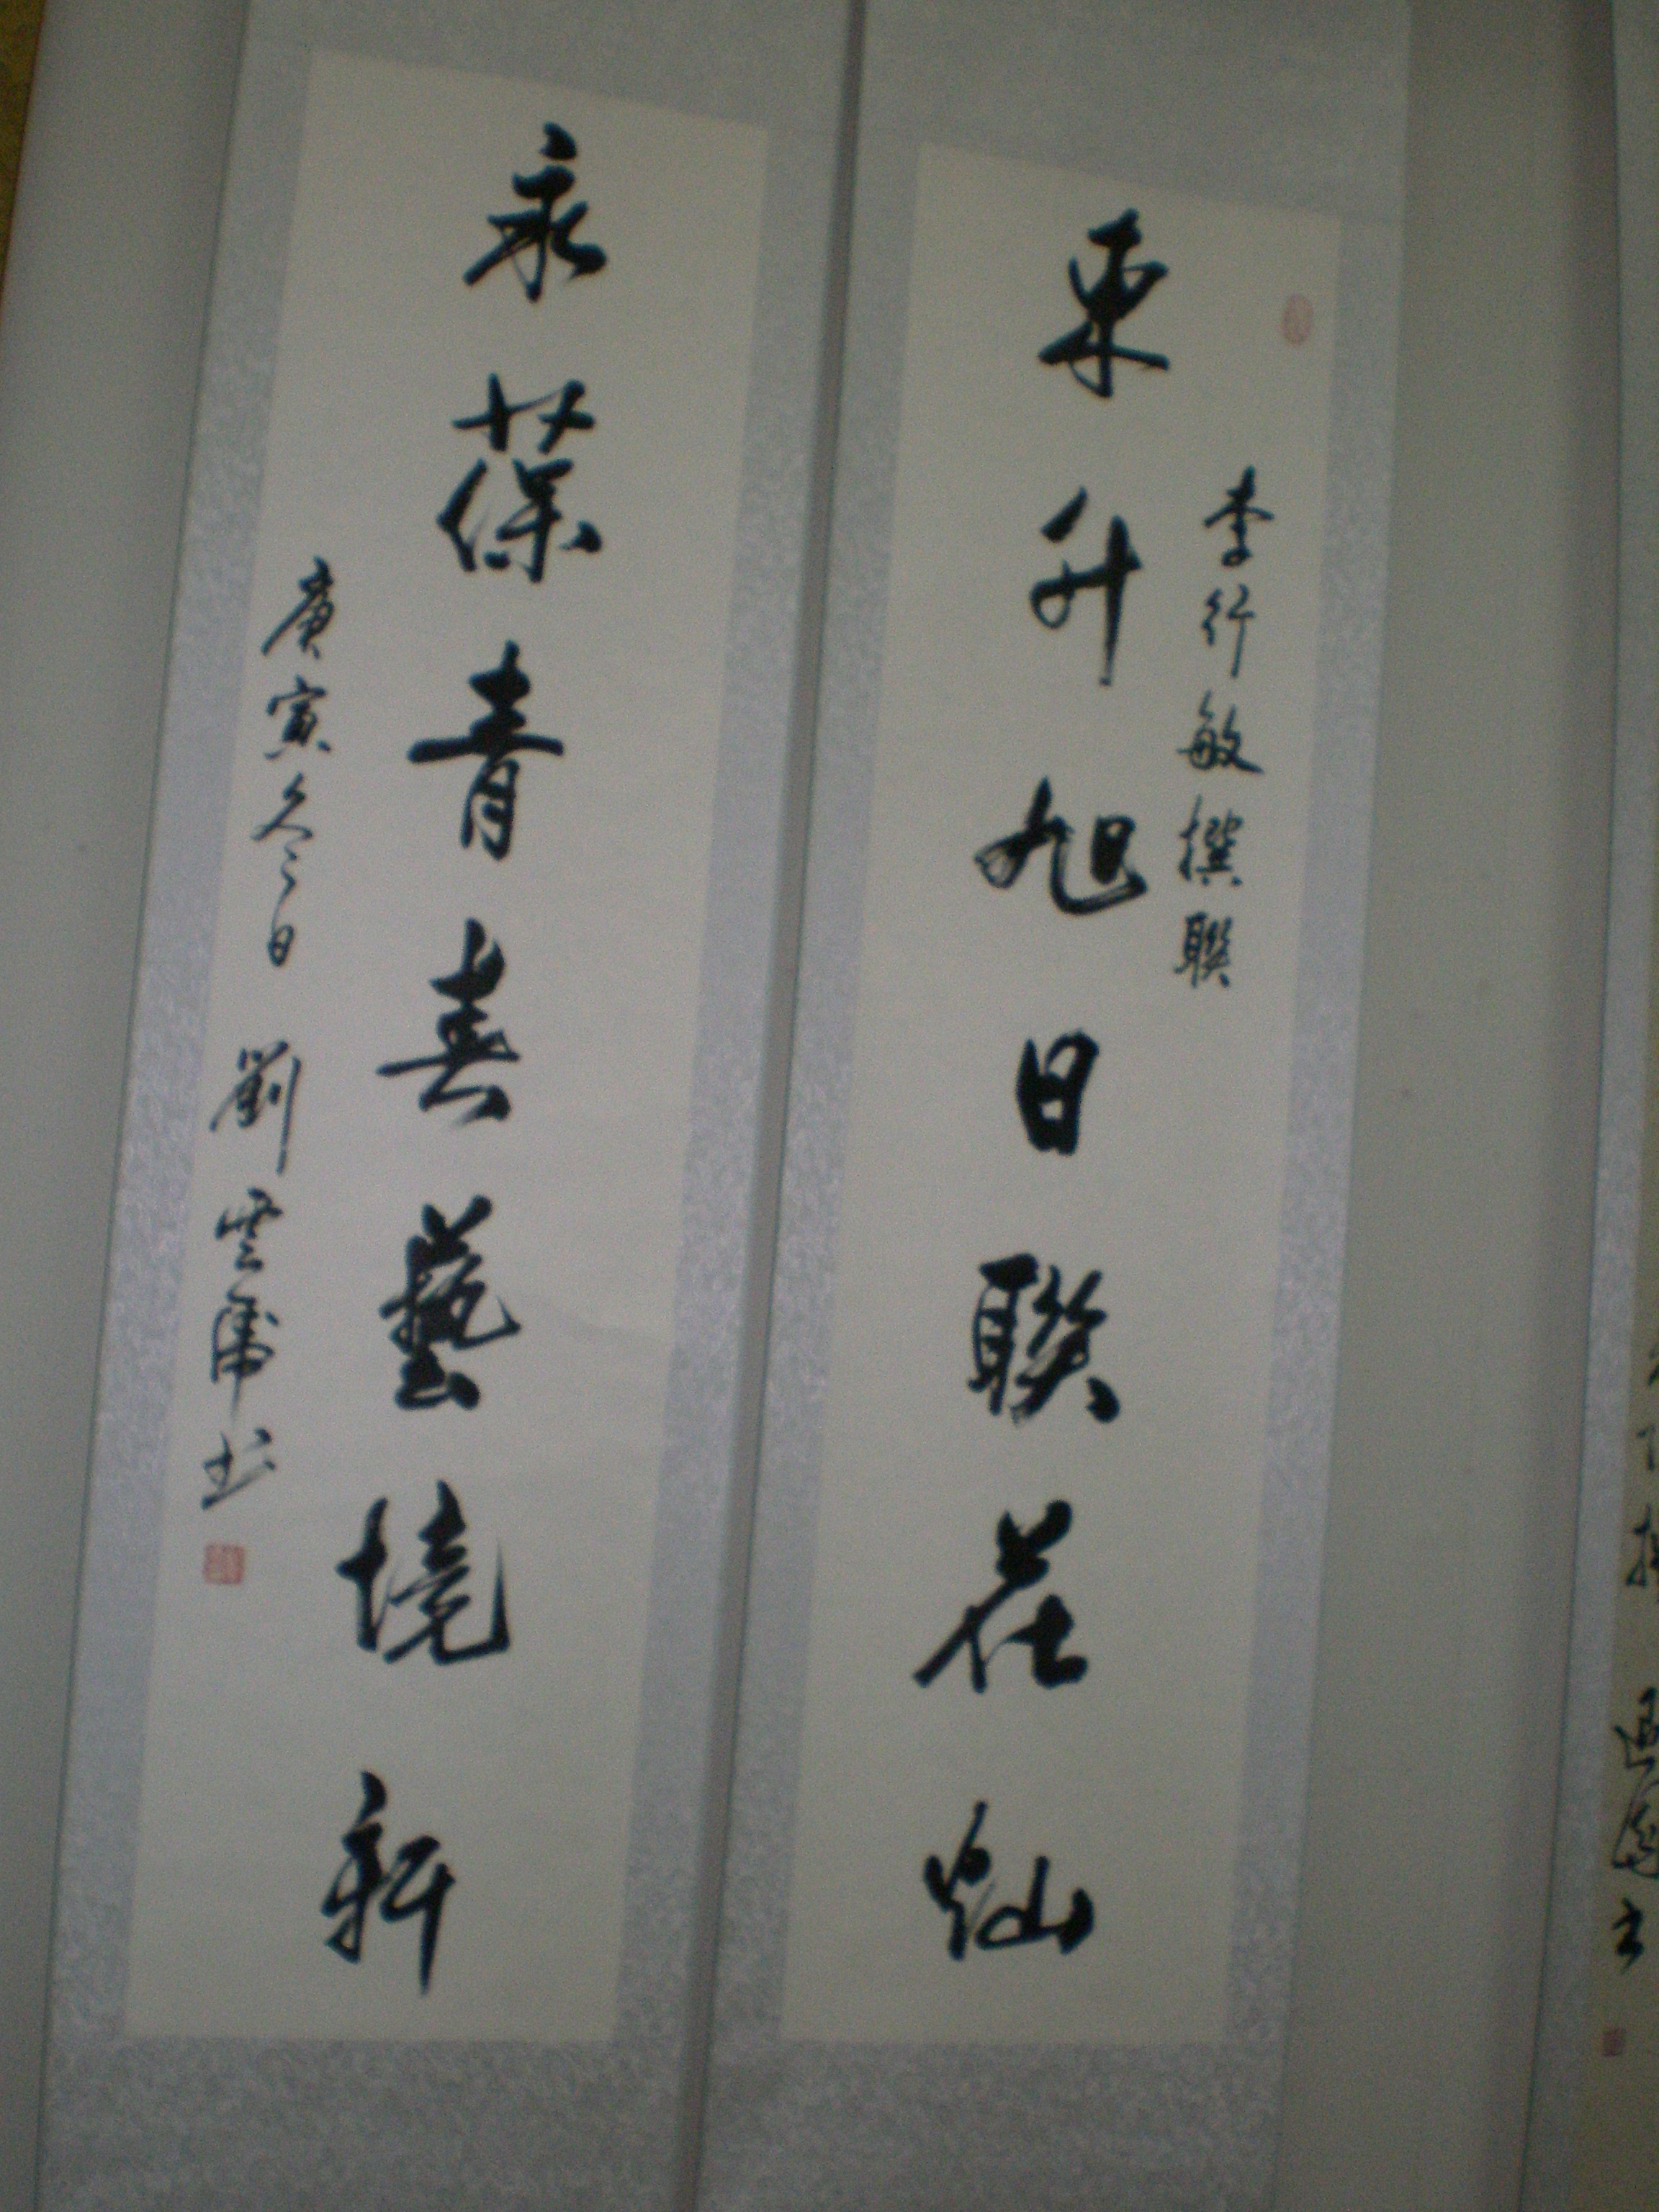 東升旭日聯花燦
李行敏撰聯
永葆青春藝境新
庚寅冬日 劉雲